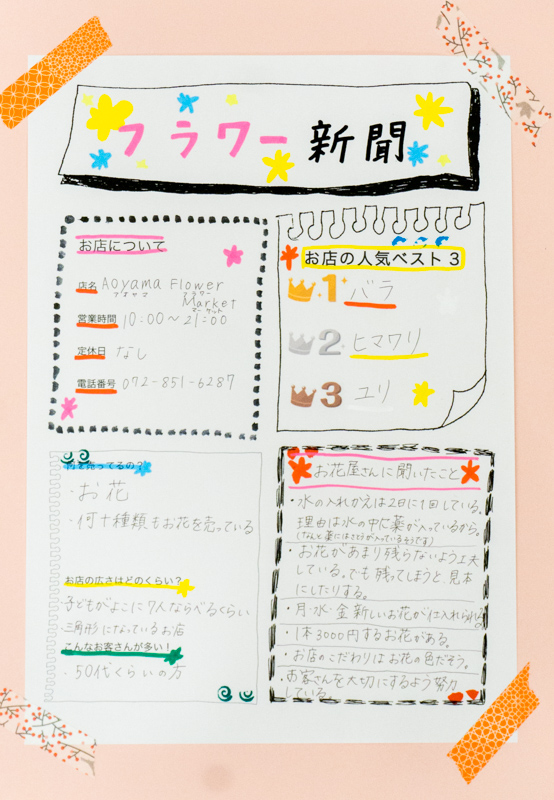 フラワー新聞
お店について
店名 Aoyama Flower
アオヤマ フラワー
Market
マーケット
営業時間 10:00〜21:00
定休日 なし
電話番号 072-851-6287
お店の人気ベスト3
1 バラ
2 ヒマワリ
3 ユリ
何を売ってるの?
・お花
・何十種類もお花を売っている
お店の広さはどのくらい?
子どもがよこに7人ならべるくらい
・三角形になっているお店
こんなお客さんが多い!
・50代くらいの方
お花屋さんに聞いたこと
・水の入れかえは2日に1回している。
理由は水の中に薬が入っているから。
(なんと薬にはさとうが入っているそうです)
・お花があまり残らないよう工夫
している。でも残ってしまうと、見本
にしたりする。
・月・水・金新しいお花が仕入れられる
・1本3000円するお花がある。
・お店のこだわりはお花の色だそう。
・お客さんを大切にするよう努力
している。